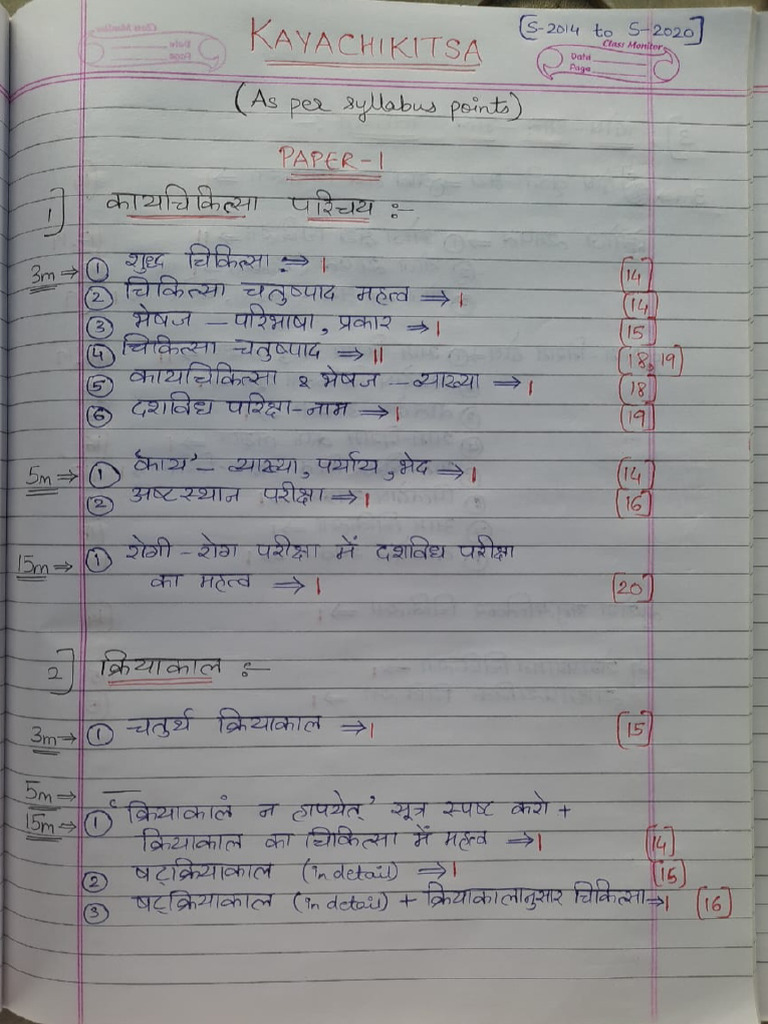 [S-2014 to S-2020]
KAYACHIKITSA
Class Monitor
Date
Page
(As per syllabus points)
PAPER-1
1] कायचिकित्सा परिचय :-
3m → ① शुद्ध चिकित्सा → 1 [14]
② चिकित्सा चतुष्पाद महत्व → 1 [14]
③ भेषज - परिभाषा, प्रकार → 1 [15]
④ चिकित्सा चतुष्पाद → 11 [18, 19]
⑤ कायचिकित्सा & भेषज - व्याख्या → 1 [18]
⑥ दशविध परिक्षा - नाम → 1 [19]
5m → ① 'काय' - व्याख्या, पर्याय, भेद → 1 [14]
② अष्टस्थान परीक्षा → 1 [16]
15m → ① रोगी - रोग परीक्षा में दशविध परीक्षा
का महत्व → 1 [20]
2] क्रियाकाल :-
3m → ① चतुर्थ क्रियाकाल → 1 [15]
5m → —
15m → ① 'क्रियाकालं न हापयेत्' सूत्र स्पष्ट करो +
क्रियाकाल का चिकित्सा में महत्व → 1 [14]
② षट्क्रियाकाल (in detail) → 1 [15]
③ षट्क्रियाकाल (in detail) + क्रियाकालानुसार चिकित्सा → 1 [16]